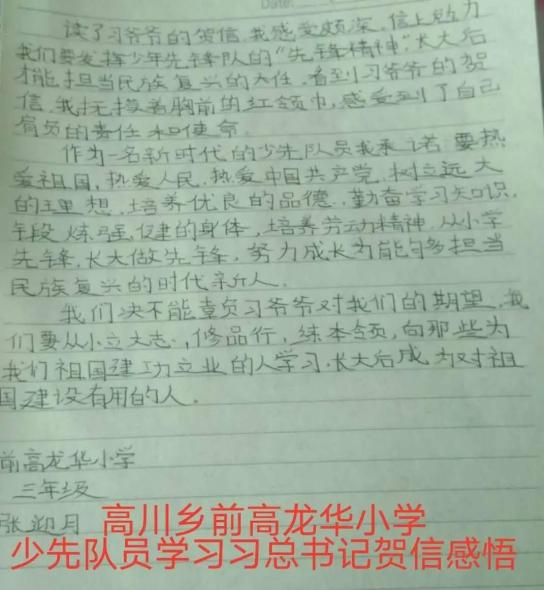 Date:
读了习爷爷的贺信,我感受颇深,信上勉力
我们要发挥少年先锋队的“先锋精神”,长大后
才能担当民族复兴的大任,看到习爷爷的贺
信,我抚摸着胸前的红领巾,感受到了自己
肩负的责任和使命。
作为一名新时代的少先队员我承诺:要热
爱祖国,热爱人民,热爱中国共产党,树立远大
的理想,培养优良的品德,勤奋学习知识,
锻炼强健的身体,培养劳动精神,从小学
先锋,长大做先锋,努力成长为能够担当
民族复兴的时代新人。
我们决不能辜负习爷爷对我们的期望,我
们要从小立大志,修品行,练本领,向那些为
我们祖国建功立业的人学习,长大后成为对祖
国建设有用的人。
前高龙华小学
三年级
张迎月
高川乡前高龙华小学
少先队员学习习总书记贺信感悟